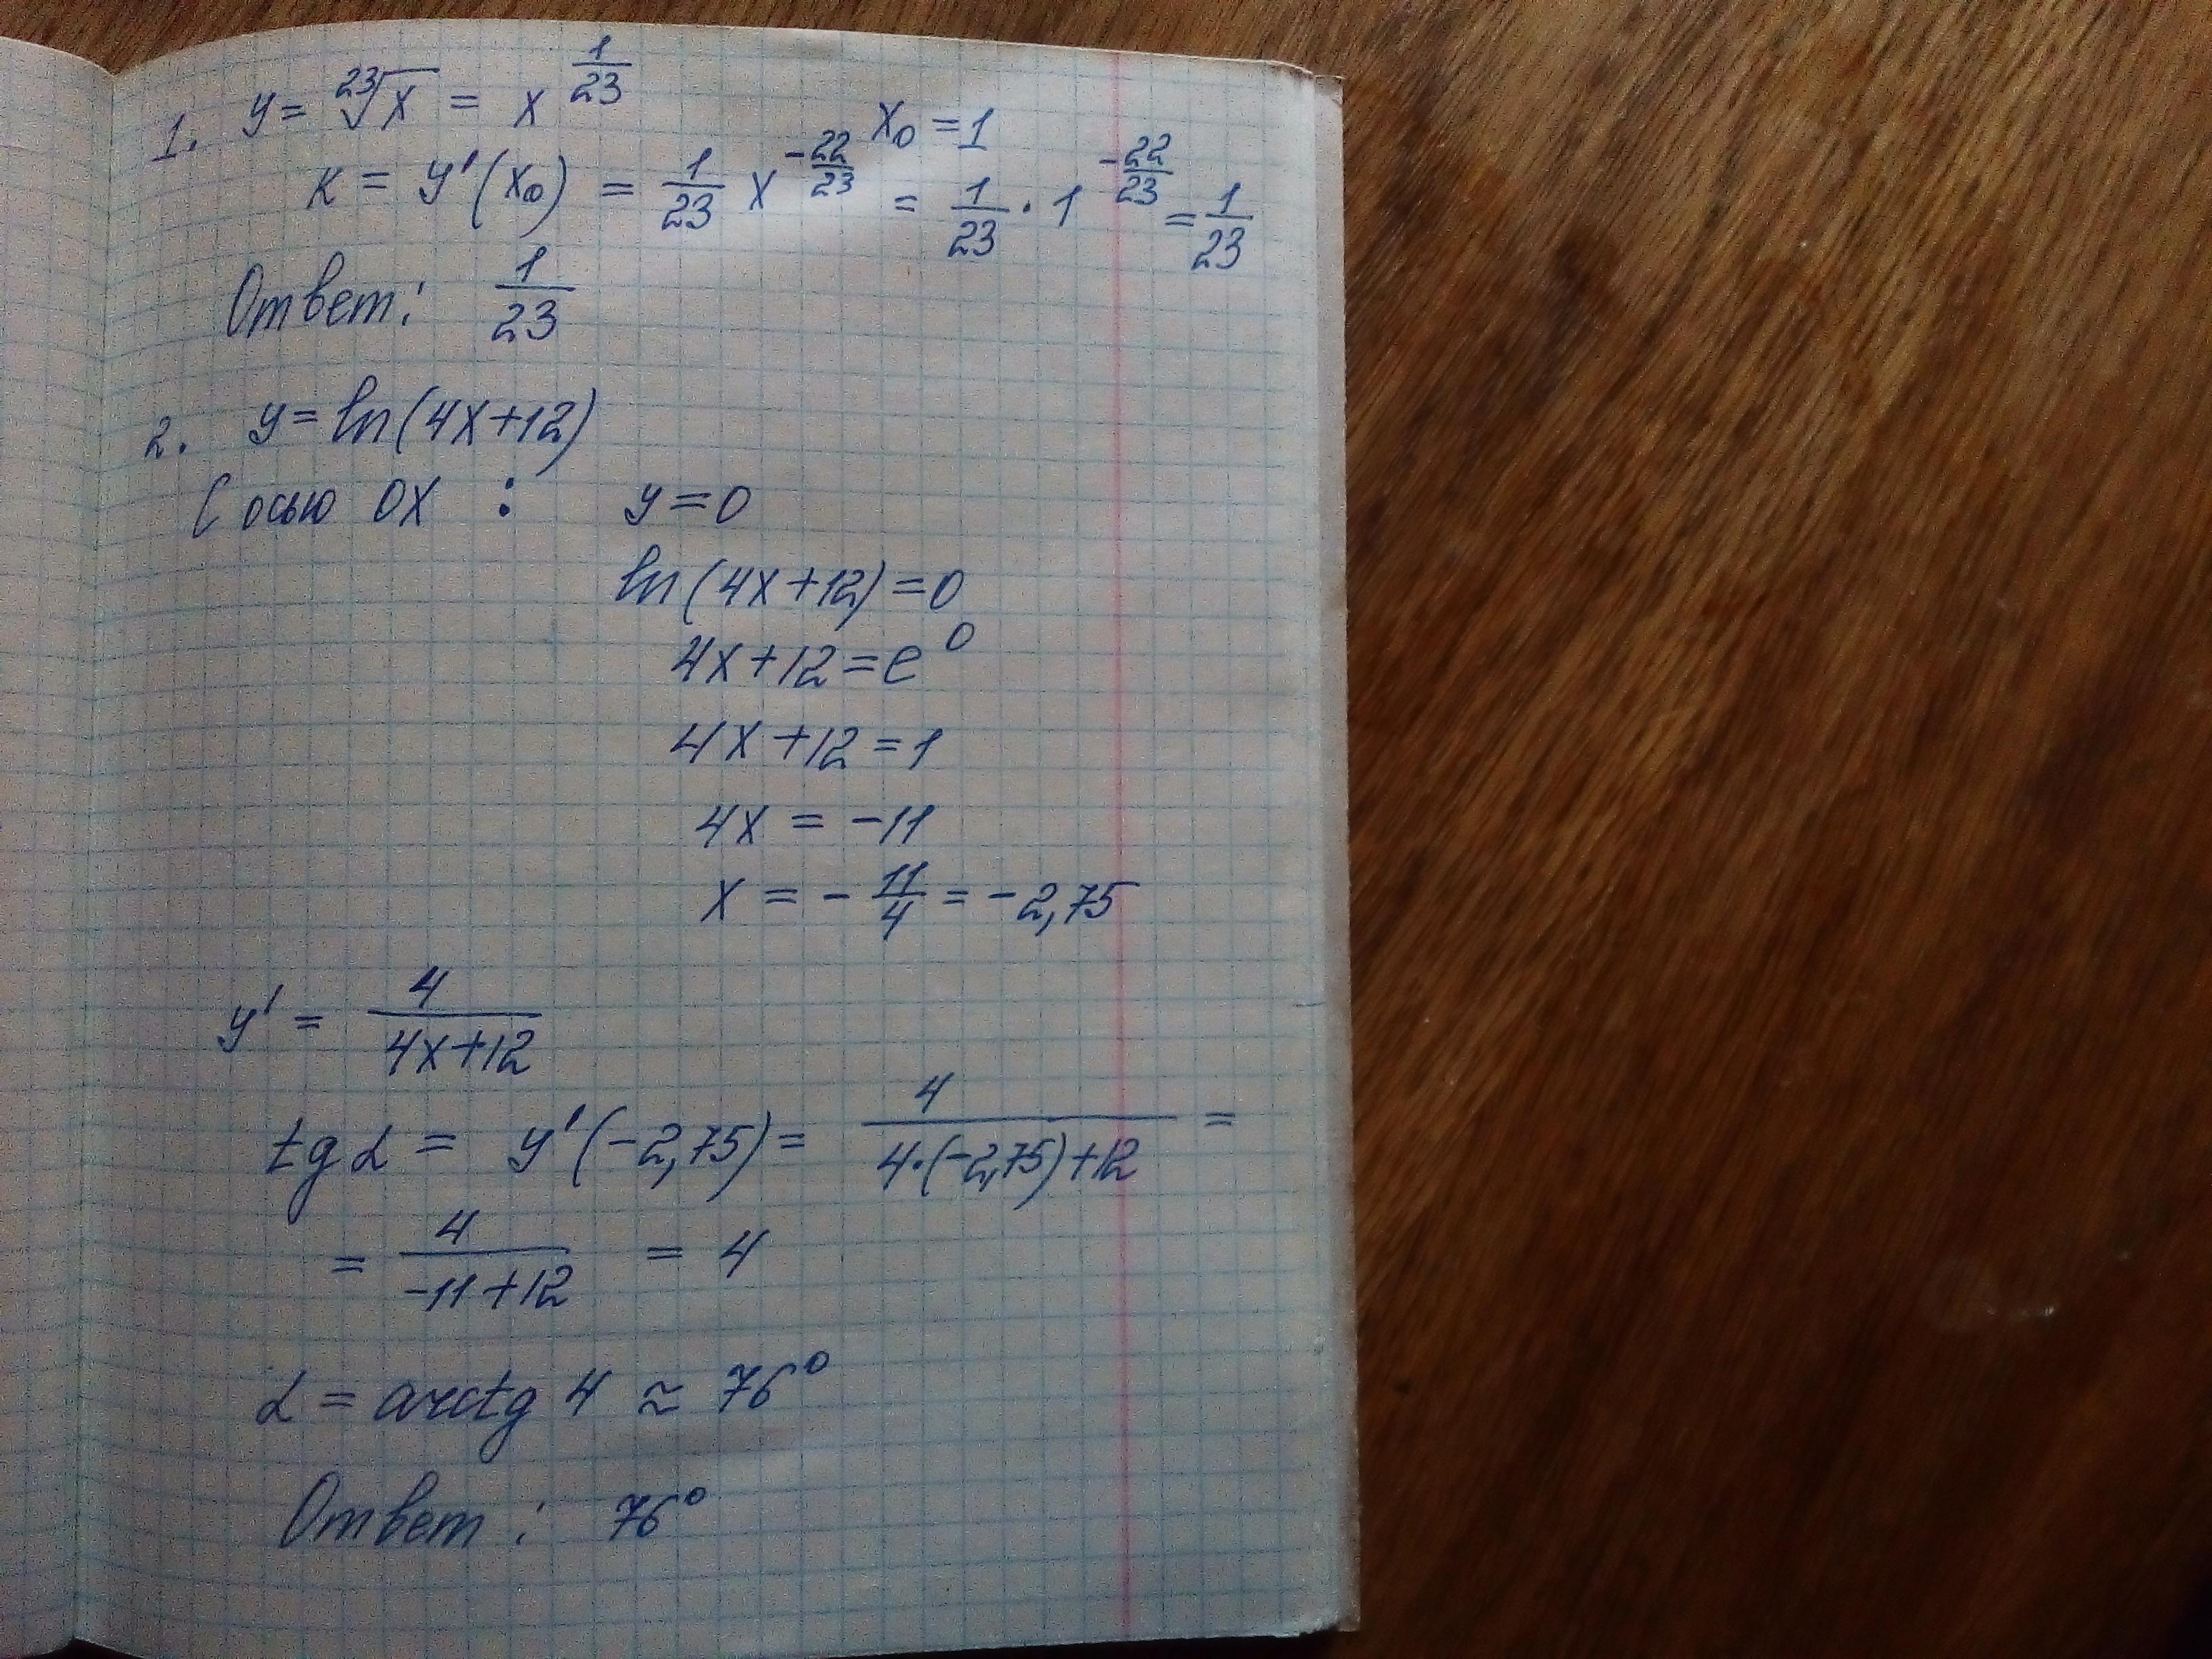 1. y = ²³√x = x^(1/23) x₀ = 1
к = y'(x₀) = 1/23 x^(-22/23) = 1/23 · 1^(-22/23) = 1/23
Ответ: 1/23
2. y = ln(4x+12)
С осью OX : y = 0
ln(4x+12) = 0
4x+12 = e⁰
4x+12 = 1
4x = -11
x = - 11/4 = -2,75
y' = 4/(4x+12)
tg α = y'(-2,75) = 4/(4·(-2,75)+12) =
= 4/(-11+12) = 4
α = arctg 4 ≈ 76°
Ответ: 76°